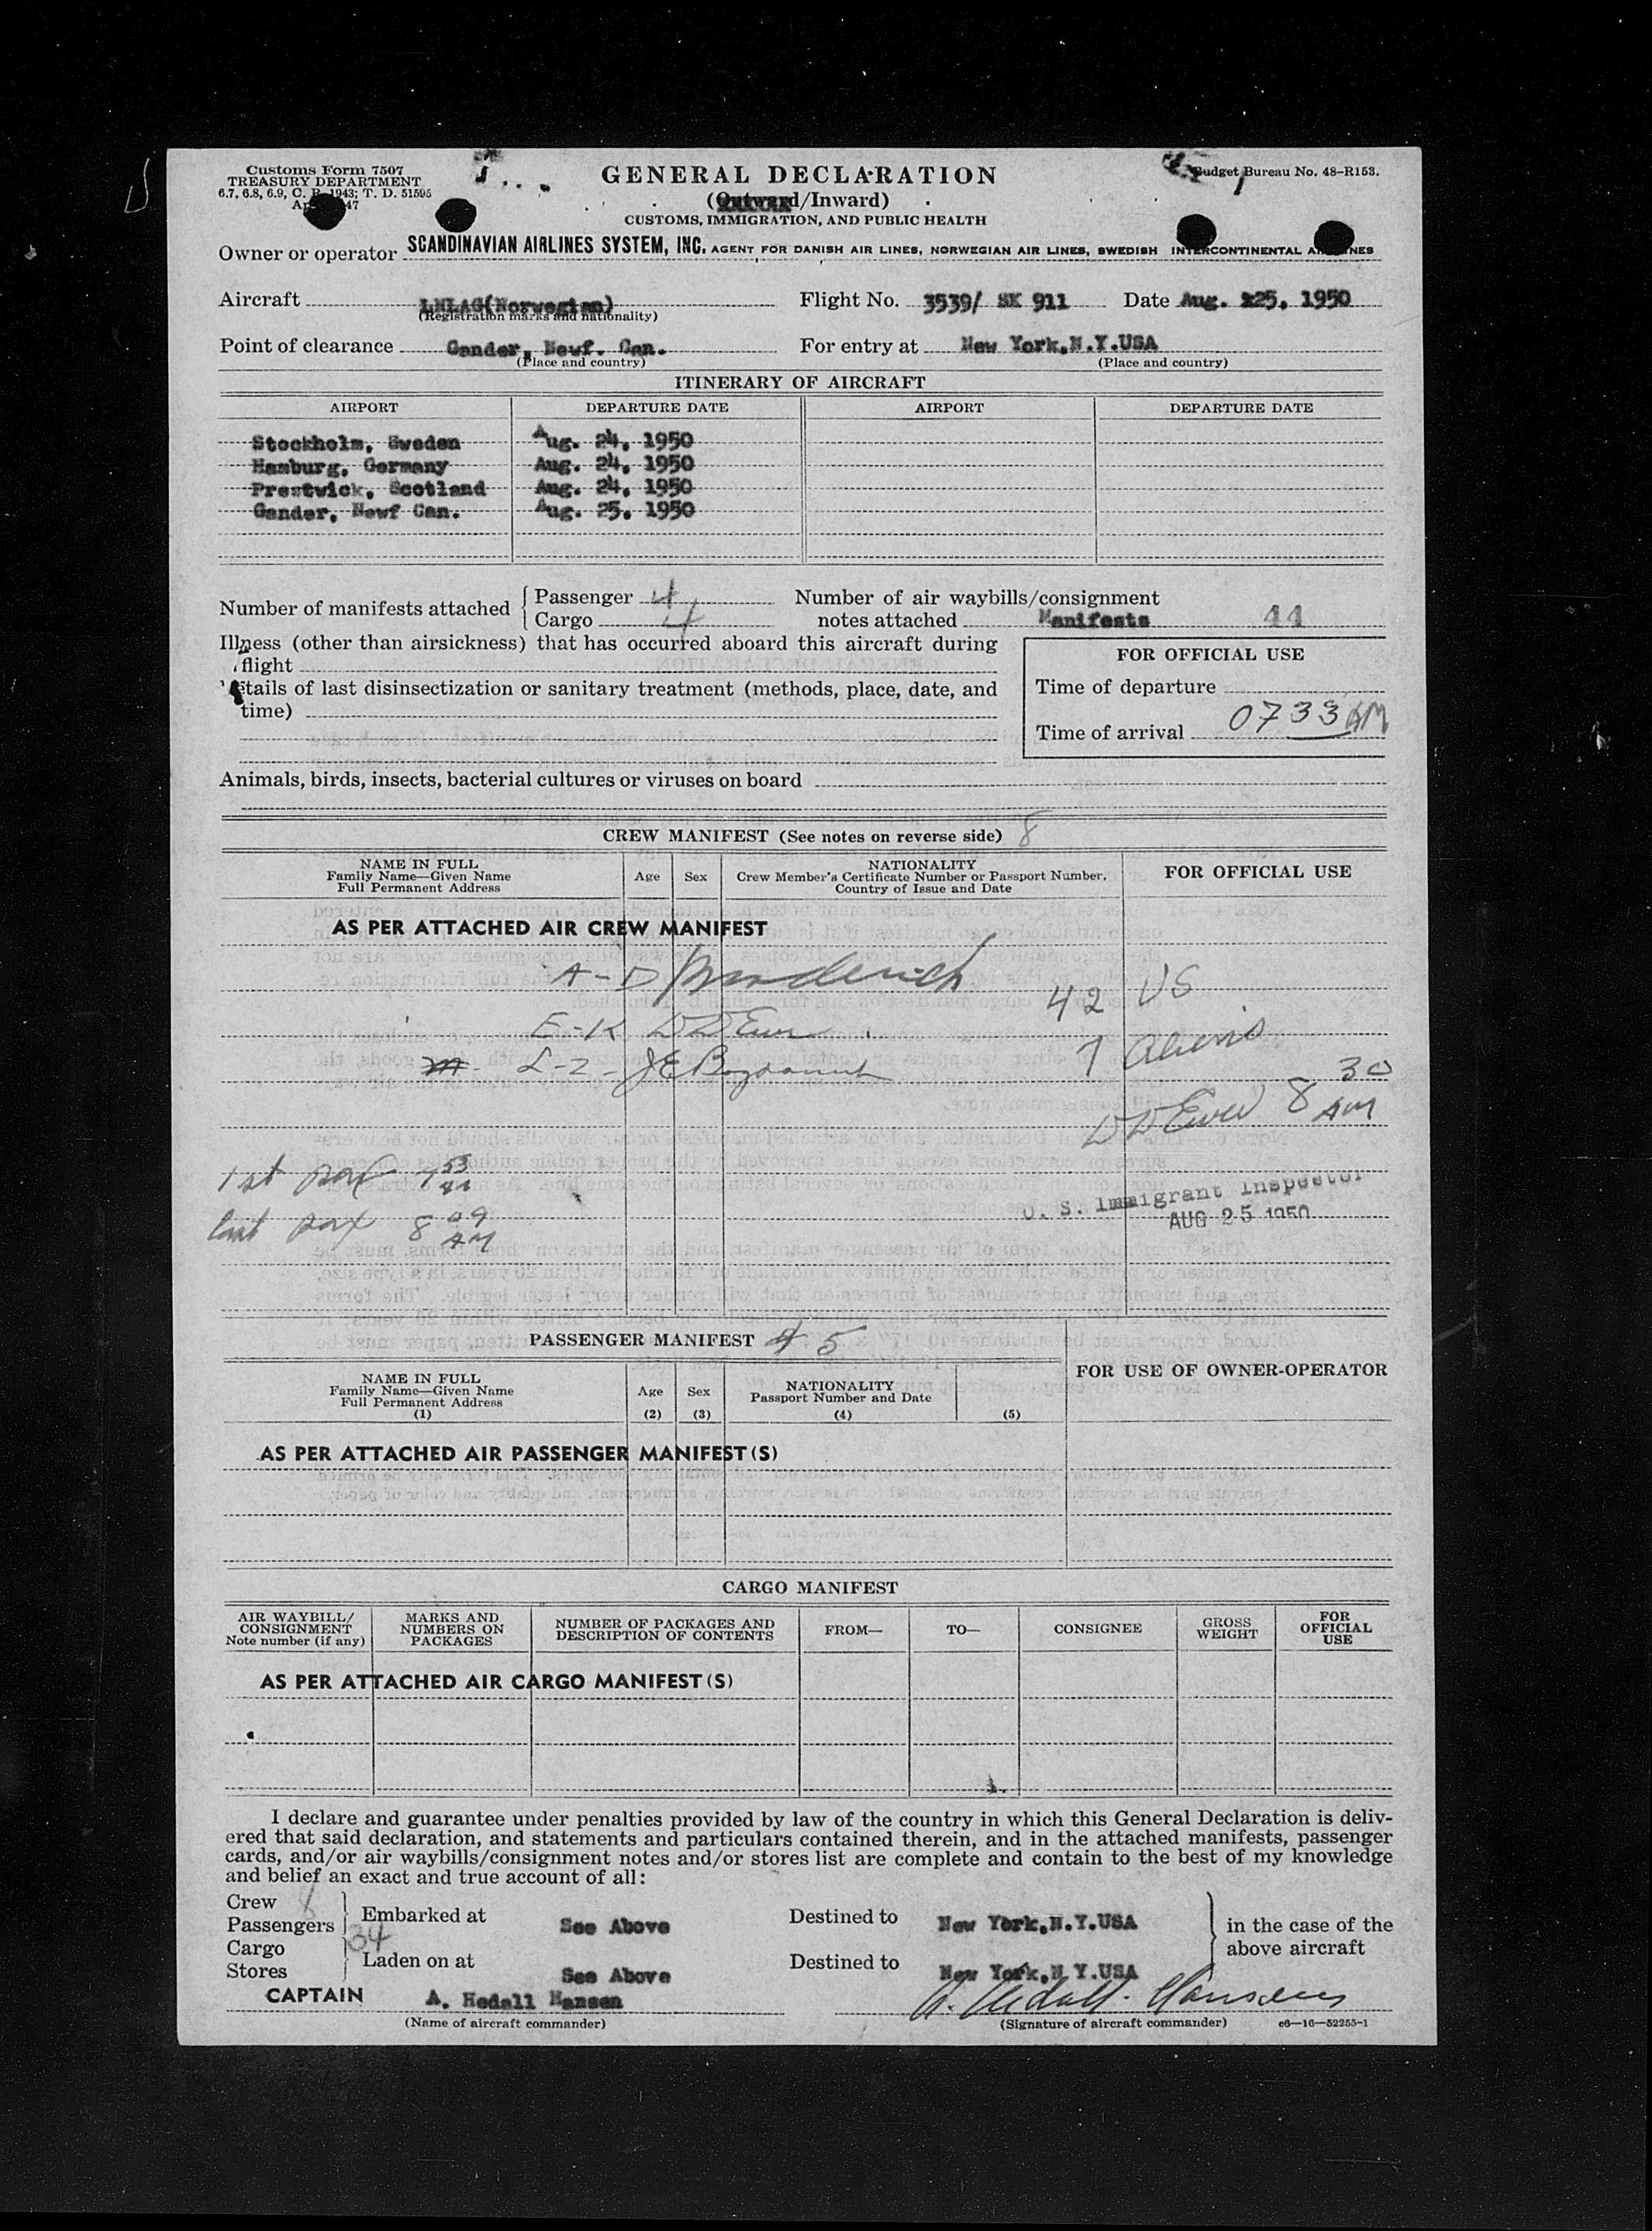 Customs Form 7507
TREASURY DEPARTMENT
6.7, 6.8, 6.9, C. R. 1943; T. D. 51595
47
GENERAL DECLARATION
(Outward/Inward)
CUSTOMS, IMMIGRATION, AND PUBLIC HEALTH
Budget Bureau No. 48-R153.
Owner or operator SCANDINAVIAN AIRLINES SYSTEM, INC. AGENT FOR DANISH AIR LINES, NORWEGIAN AIR LINES, SWEDISH INTERCONTINENTAL AIRLINES
Aircraft LNLAG(Norwegian) Flight No. 3539/ SK 911 Date Aug. 25, 1950
(Registration marks and nationality)
Point of clearance Gander, Newf. Can. For entry at New York,N.Y.USA
(Place and country) (Place and country)
ITINERARY OF AIRCRAFT
AIRPORT DEPARTURE DATE AIRPORT DEPARTURE DATE
Stockholm, Sweden Aug. 24, 1950
Hamburg, Germany Aug. 24, 1950
Prestwick, Scotland Aug. 24, 1950
Gander, Newf Can. Aug. 25, 1950
Number of manifests attached { Passenger 4
Cargo 4
Number of air waybills/consignment
notes attached Manifests 44
Illness (other than airsickness) that has occurred aboard this aircraft during
flight
Details of last disinsectization or sanitary treatment (methods, place, date, and
time)
FOR OFFICIAL USE
Time of departure
Time of arrival 0733 AM
Animals, birds, insects, bacterial cultures or viruses on board
CREW MANIFEST (See notes on reverse side) 8
NAME IN FULL
Family Name—Given Name
Full Permanent Address
Age Sex
NATIONALITY
Crew Member's Certificate Number or Passport Number,
Country of Issue and Date
FOR OFFICIAL USE
AS PER ATTACHED AIR CREW MANIFEST
A-D
42 US
E-K
7 Aliens
L-Z
8 30 AM
1st pax 7 53
last pax 8 09 AM
U. S. Immigrant Inspector
AUG 25 1950
PASSENGER MANIFEST 4 5
NAME IN FULL
Family Name—Given Name
Full Permanent Address
(1)
Age
(2)
Sex
(3)
NATIONALITY
Passport Number and Date
(4)
(5)
FOR USE OF OWNER-OPERATOR
AS PER ATTACHED AIR PASSENGER MANIFEST(S)
CARGO MANIFEST
AIR WAYBILL/
CONSIGNMENT
Note number (if any)
MARKS AND
NUMBERS ON
PACKAGES
NUMBER OF PACKAGES AND
DESCRIPTION OF CONTENTS
FROM—
TO—
CONSIGNEE
GROSS
WEIGHT
FOR
OFFICIAL
USE
AS PER ATTACHED AIR CARGO MANIFEST(S)
I declare and guarantee under penalties provided by law of the country in which this General Declaration is deliv-
ered that said declaration, and statements and particulars contained therein, and in the attached manifests, passenger
cards, and/or air waybills/consignment notes and/or stores list are complete and contain to the best of my knowledge
and belief an exact and true account of all:
Crew 8
Passengers 34
Cargo
Stores
Embarked at See Above
Laden on at See Above
Destined to New York,N.Y.USA
Destined to New York,N Y.USA
in the case of the
above aircraft
CAPTAIN A. Hedall Hansen A. Hedall-Hansen
(Name of aircraft commander) (Signature of aircraft commander) c6—16—52255-1